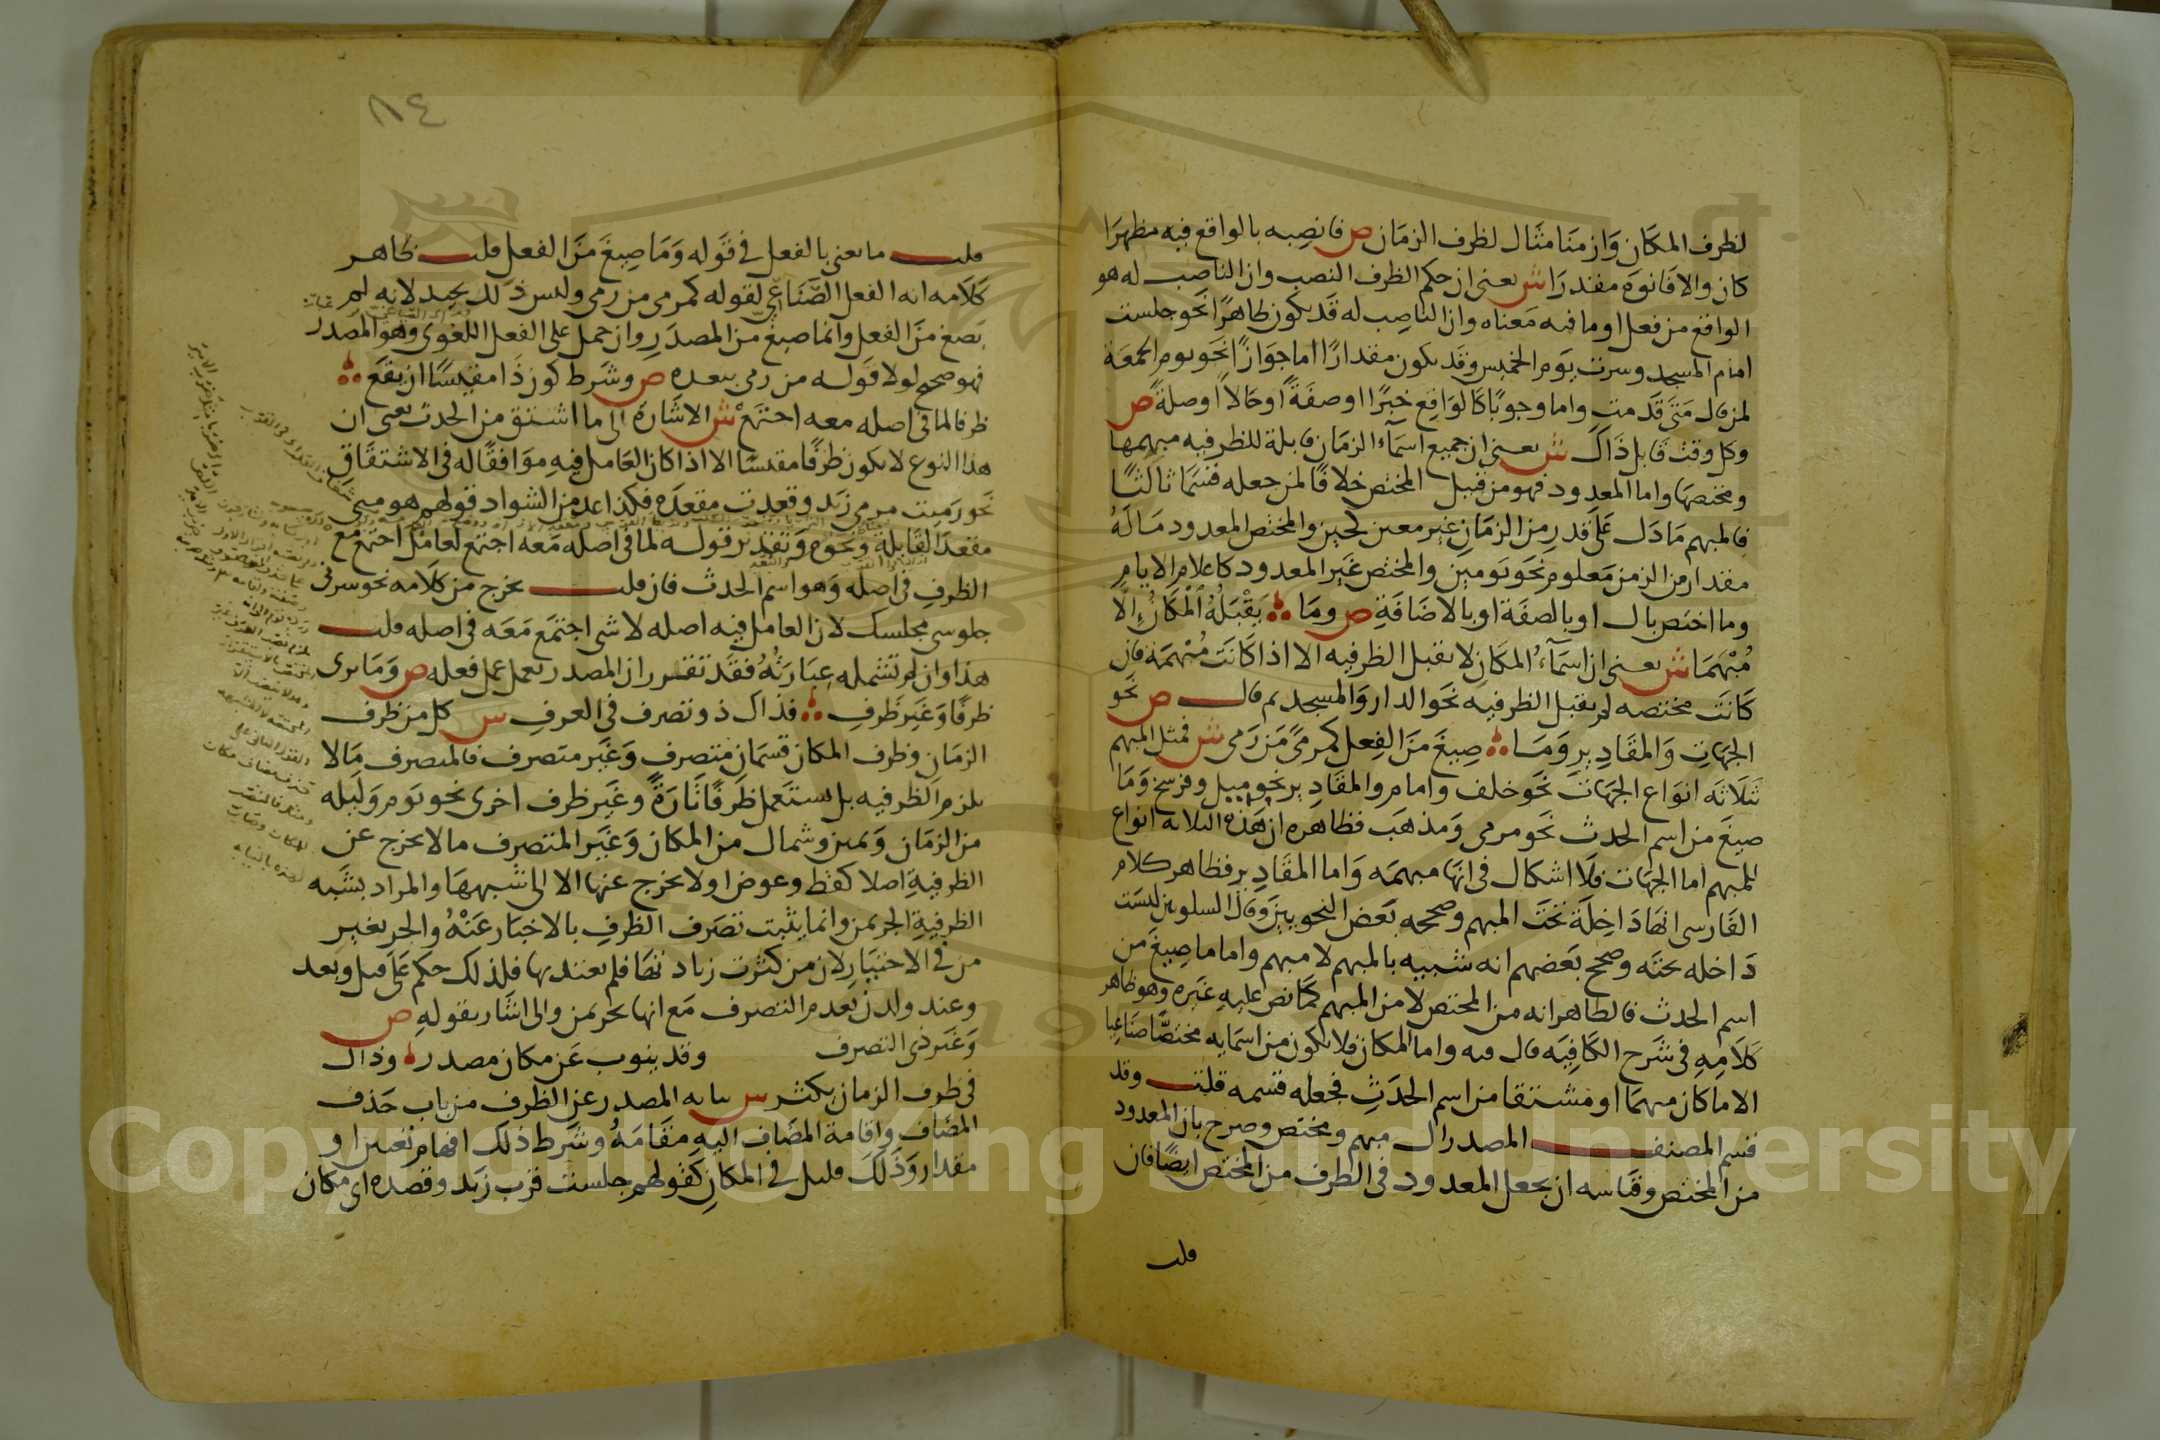 لظرف المكان وازمنا مثال لظرف الزمان ص فانصبه بالواقع فيه مظهرا
كان والا فانوه مقدرا ش يعني ان حكم الظرف النصب وان الناصب له هو
الواقع من فعل او ما فيه معناه وان الناصب له قد يكون ظاهرا نحو جلست
امام المسجد وسرت يوم الخميس وقد يكون مقدارا اما جوازا نحو يوم الجمعة
لمن قال متى قدمت واما وجوبا كالواقع خبرا او صفة او حالا او صلة ص
وكل وقت قابل ذاك ش يعني ان جميع اسماء الزمان قابلة للظرفيه مبهمها
ومختصها واما المعدود فهو من قبيل المختص خلافا لمن جعله قسما ثالثا
فالمبهم ما دل على قدر من الزمان غير معين كحين والمختص المعدود ما له
مقدار من الزمن معلوم نحو يومين والمختص غير المعدود كاعلام الايام
وما اختص بال او بالصفة او بالاضافة ص وما يقبله المكان الا
مبهما ش يعني ان اسماء المكان لا يقبل الظرفيه الا اذا كانت مبهمة فان
كانت مختصه لم يقبل الظرفيه نحو الدار والمسجد ثم قال ص نحو
الجهات والمقادير وما صيغ من الفعل كمرمى من رمى ش فمثل المبهم
ثلاثه انواع الجهات نحو خلف وامام والمقادير نحو ميل وفرسخ وما
صيغ من اسم الحدث نحو مرمى ومذهب فظاهره ان هذه الثلاثه انواع
للمبهم اما الجهات فلا اشكال في انها مبهمه واما المقادير فظاهر كلام
الفارسي انها داخلة تحت المبهم وصححه بعض النحويين وقال السلوبين ليست
داخله تحته وصحح بعضهم انه شبيه بالمبهم لا مبهم واما ما صيغ من
اسم الحدث فالظاهر انه من المختص لا من المبهم كما نص عليه غيره وهو ظاهر
كلامه في شرح الكافيه قال فيه واما المكان فلا يكون من اسمايه مختصا صناعيا
الا ما كان مبهما او مشتقا من اسم الحدث فجعله قسمه قلت وقد
قسم المصنف المصدر الى مبهم ومختص وصرح بان المعدود
من المختص وقياسه ان يجعل المعدود في الظرف من المختص ايضا فان
قلت
٨٤
قلت ما يعني بالفعل في قوله وما صيغ من الفعل قلت ظاهر
كلامه انه الفعل الصناعي لقوله كمرمى من رمى وليس ذلك بجيد لانه لم
يصغ من الفعل وانما صيغ من المصدر وان حمل على الفعل اللغوي وهو المصدر
فهو صحيح لولا قوله من رمى بعده ص وشرط كون ذا مقيسا ان يقع
ظرفا لما في اصله معه اجتمع ش الاشارة الى ما اشتق من الحدث يعني ان
هذا النوع لا يكون ظرفا مقيسا الا اذا كان العامل فيه موافقا له في الاشتقاق
نحو رميت مرمى زيد وقعدت مقعده فلذا عد من الشواذ قولهم هو مني
مقعد القابلة ونحوه وتقدير قوله لما في اصله معه اجتمع لعامل اجتمع مع
الظرف في اصله وهو اسم الحدث فان قلت يخرج من كلامه نحو سرني
جلوسي مجلسك لان العامل فيه اصله لا شي اجتمع معه في اصله قلت
هذا وان لم تشمله عبارته فقد تقرر ان المصدر يعمل عمل فعله ص وما يرى
ظرفا وغير ظرف فذاك ذو تصرف في العرف ش كل من ظرف
الزمان وظرف المكان قسمان متصرف وغير متصرف فالمتصرف ما لا
يلزم الظرفيه بل يستعمل ظرفا تارة وغير ظرف اخرى نحو يوم وليله
من الزمان ويمين وشمال من المكان وغير المتصرف ما لا يخرج عن
الظرفية اصلا كقط وعوض او لا يخرج عنها الا الى شبهها والمراد بشبه
الظرفية الجر بمن وانما يثبت تصرف الظرف بالاخبار عنه والجر بغير
من في الاختيار لان من كثرت زيادتها فلم يعتد بها فلذلك حكم على قبل وبعد
وعند ولدن بعدم التصرف مع انها تجر بمن والى اشار بقوله ص
وغير ذي التصرف وقد ينوب عن مكان مصدر وذاك
في ظرف الزمان يكثر ش نيابه المصدر عن الظرف من باب حذف
المضاف واقامة المضاف اليه مقامه وشرط ذلك افهام تعيين او
مقدار وذلك قليل في المكان كقولهم جلست قرب زيد وقصده اي مكان
Copyright © King Saud University